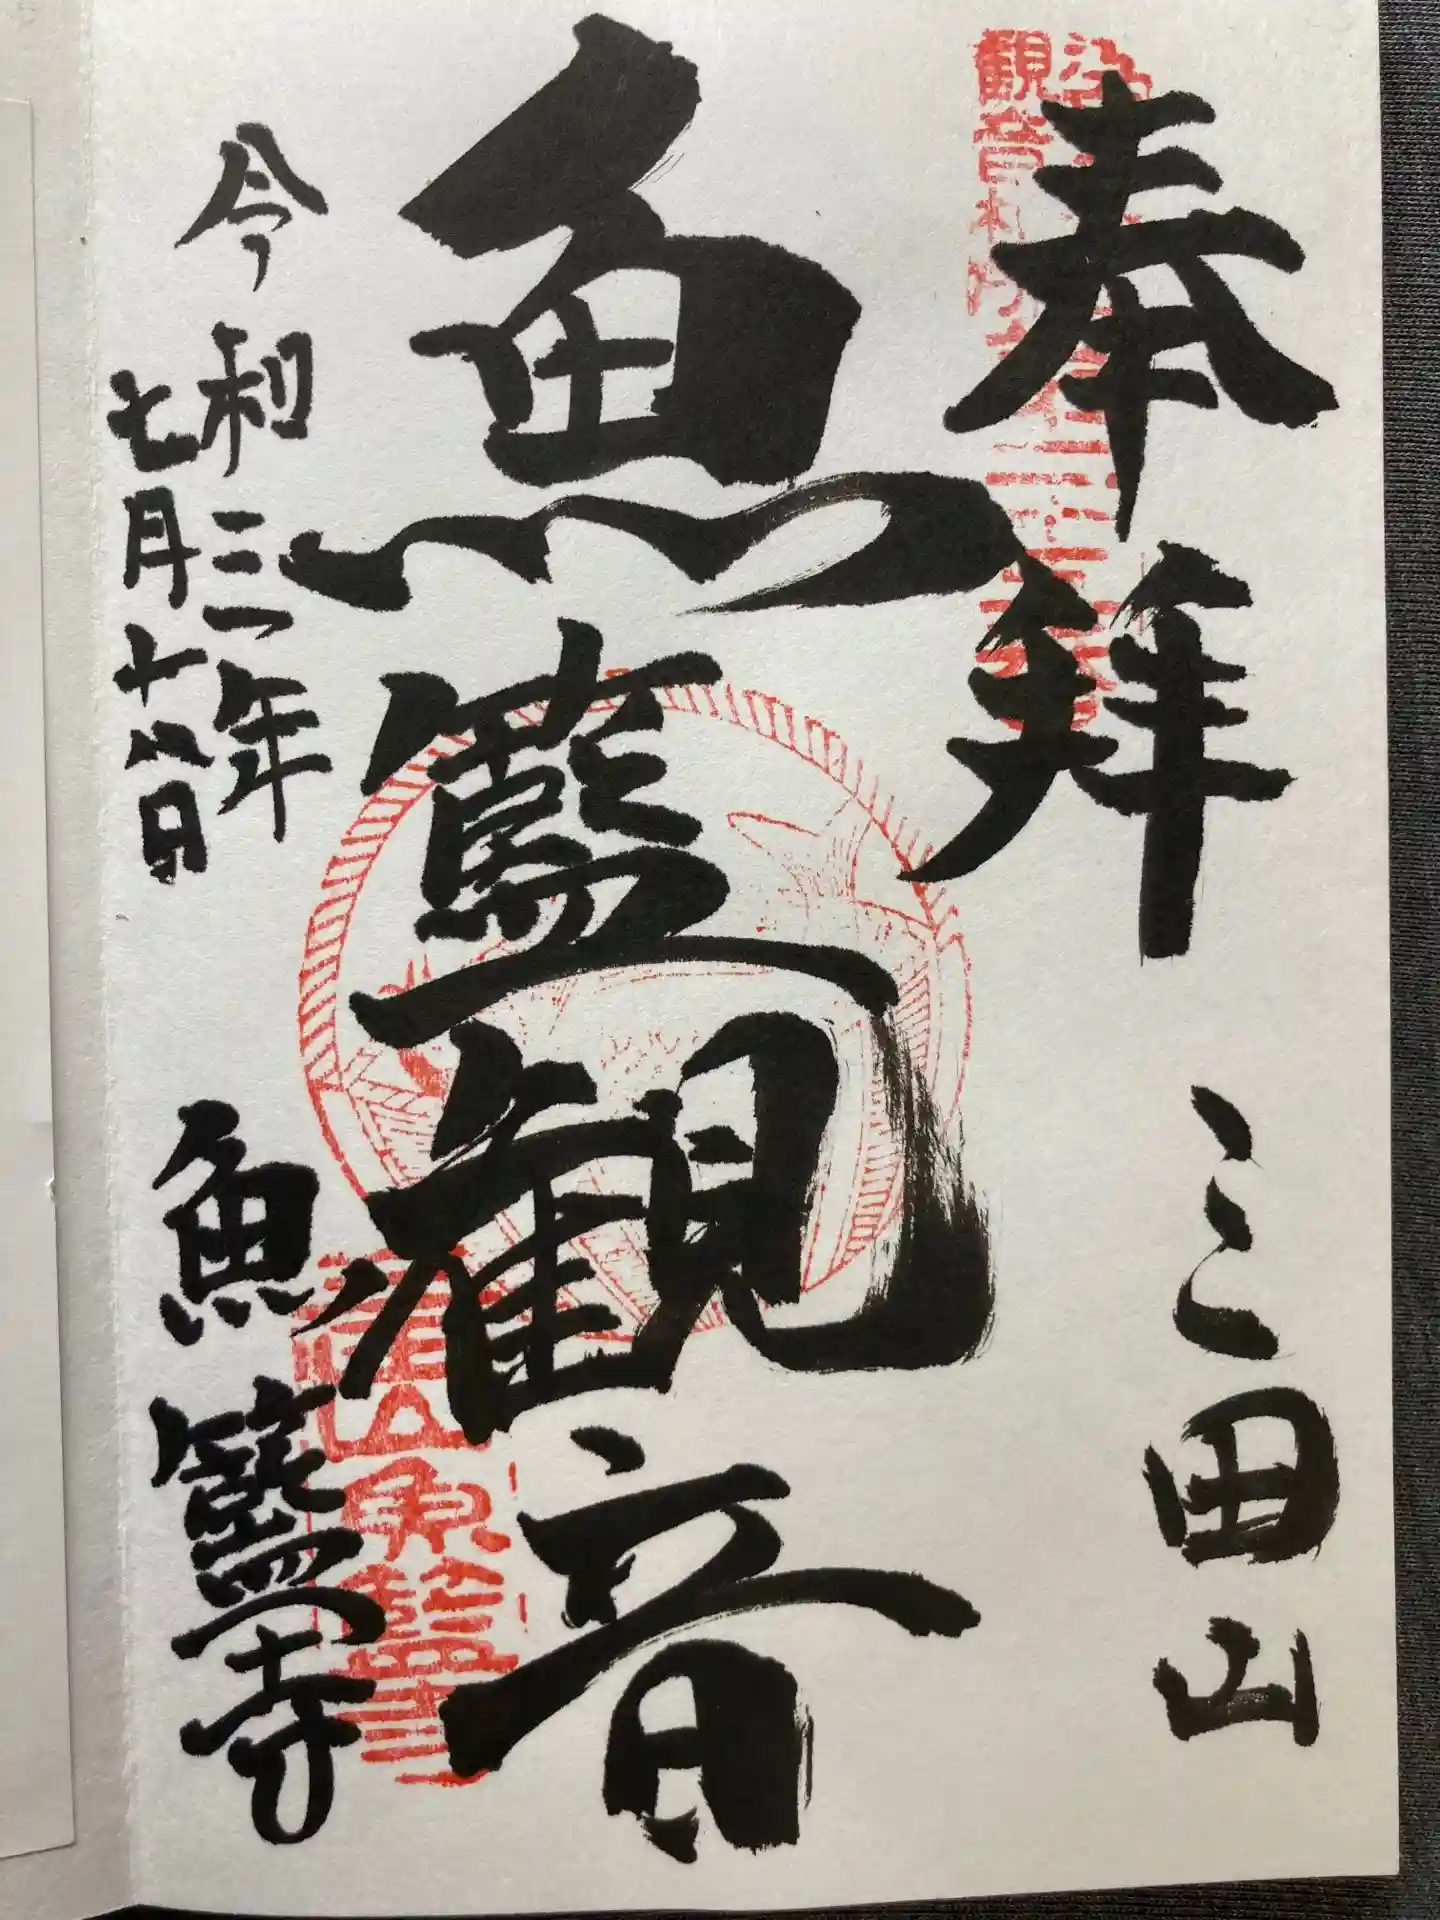 奉拜 三田山
魚籃観音
令和三年
七月十八日
魚籃寺